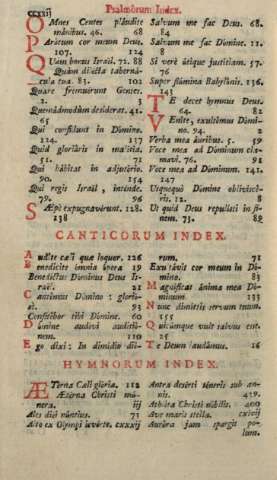 ccxxij
Psalmorum Index.
OMnes Gentes plaudite
manibus. 46. 68
PAratum cor meum Deus,
107. 124
QUam bonus Israël. 72. 88
Quàm dilecta taberná-
cula tua. 83. 102
Quare fremuérunt Gentes.
2.
Quemádmodùm desiderat. 41.
65
Qui confidunt in Dómino.
124. 137
Quid gloriáris in malítia,
51. 71
Qui hábitat in adjutório.
90. 154
Qui regis Israël, inténde.
79. 96
SÆpè expugnavérunt. 128.
138
Salvum me fac Deus. 68.
84
Salvum me fac Dómine. 11.
Si verè útique justítiam. 57.
76
Super flúmina Babylónis. 136.
143
TE decet hymnus Deus
64.
VEníte, exultémus Dómi-
no. 94. 2
Verba mea áuribus. 5. 59
Voce mea ad Dóminum cla-
mávi. 76. 91
Voce mea ad Dóminum. 141.
147
Usquequò Dómine oblivísce-
ris. 12. 8
Ut quid Deus repulísti in fi-
nem. 73. 89
CANTICORUM INDEX.
Audíte cæli quæ loquor. 126
Benedícite ómnia ópera 19
Benedíctus Dóminus Deus Is-
raël. 21
Cantémus Dómino: glorió-
sè. 93
Confitébor tibi Dómine. 60
Dómine audívi auditió-
nem. 110
Ego dixi: In dimídio dié-
rum. 71
Exultávit cor meum in Dó-
mino. 85
Magníficat ánima mea Dó-
minum 133
Nunc dimíttis servum tuum.
155
Quicúmque vult salvus esse.
25
Te Deum laudámus. 16
HYMNORUM INDEX.
ÆTerna Cæli glória. 112
Æterna Christi mú-
nera. iij
Ales diéi núntius. 71
Alto ex Olympi vértice. cxxxij
Antra desérti téneris sub an-
nis. 419.
Athleta Christi nóbilis. 400
Ave maris stella. cxivij
Auróra jam spargit po-
lum.